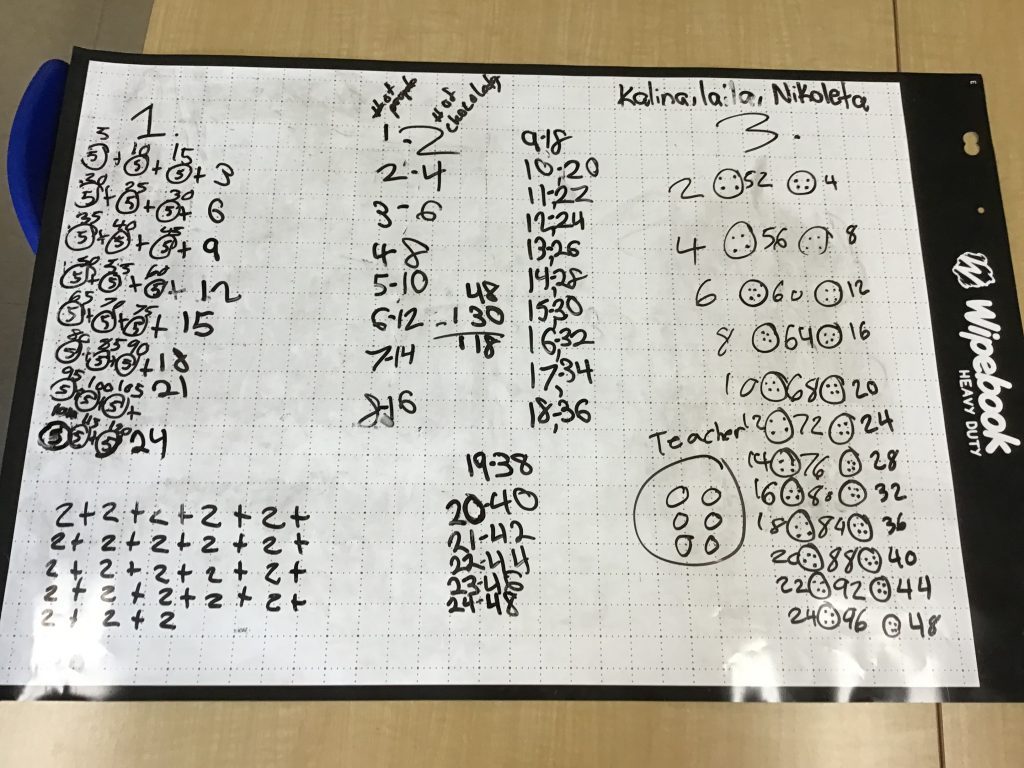 Kalina, laila, Nikoleta
1.
5 10 15
5 + 5 + 5 + 3
20 25 30
5 + 5 + 5 + 6
35 40 45
5 + 5 + 5 + 9
50 55 60
5 + 5 + 5 + 12
65 70 75
5 + 5 + 5 + 15
80 85 90
5 + 5 + 5 + 18
95 100 105
5 + 5 + 5 + 21
5 + 5 + 5 24
2 + 2 + 2 + 2 + 2 +
2 + 2 + 2 + 2 + 2 +
2 + 2 + 2 + 2 + 2 +
2 + 2 + 2 + 2 + 2 +
2 + 2 + 2
# of people
# of chocolates
1-2
2-4
3-6
4-8
5-10
6-12
7-14
8-16
48
- 130
118
9-18
10-20
11-22
12-24
13-26
14-28
15-30
16-32
17-34
18-36
19-38
20-40
21-42
22-44
23-46
24-48
3.
2 52 4
4 56 8
6 60 12
8 64 16
10 68 20
12 72 24
14 76 28
16 80 32
18 84 36
20 88 40
22 92 44
24 96 48
Teacher
Wipebook
HEAVY DUTY